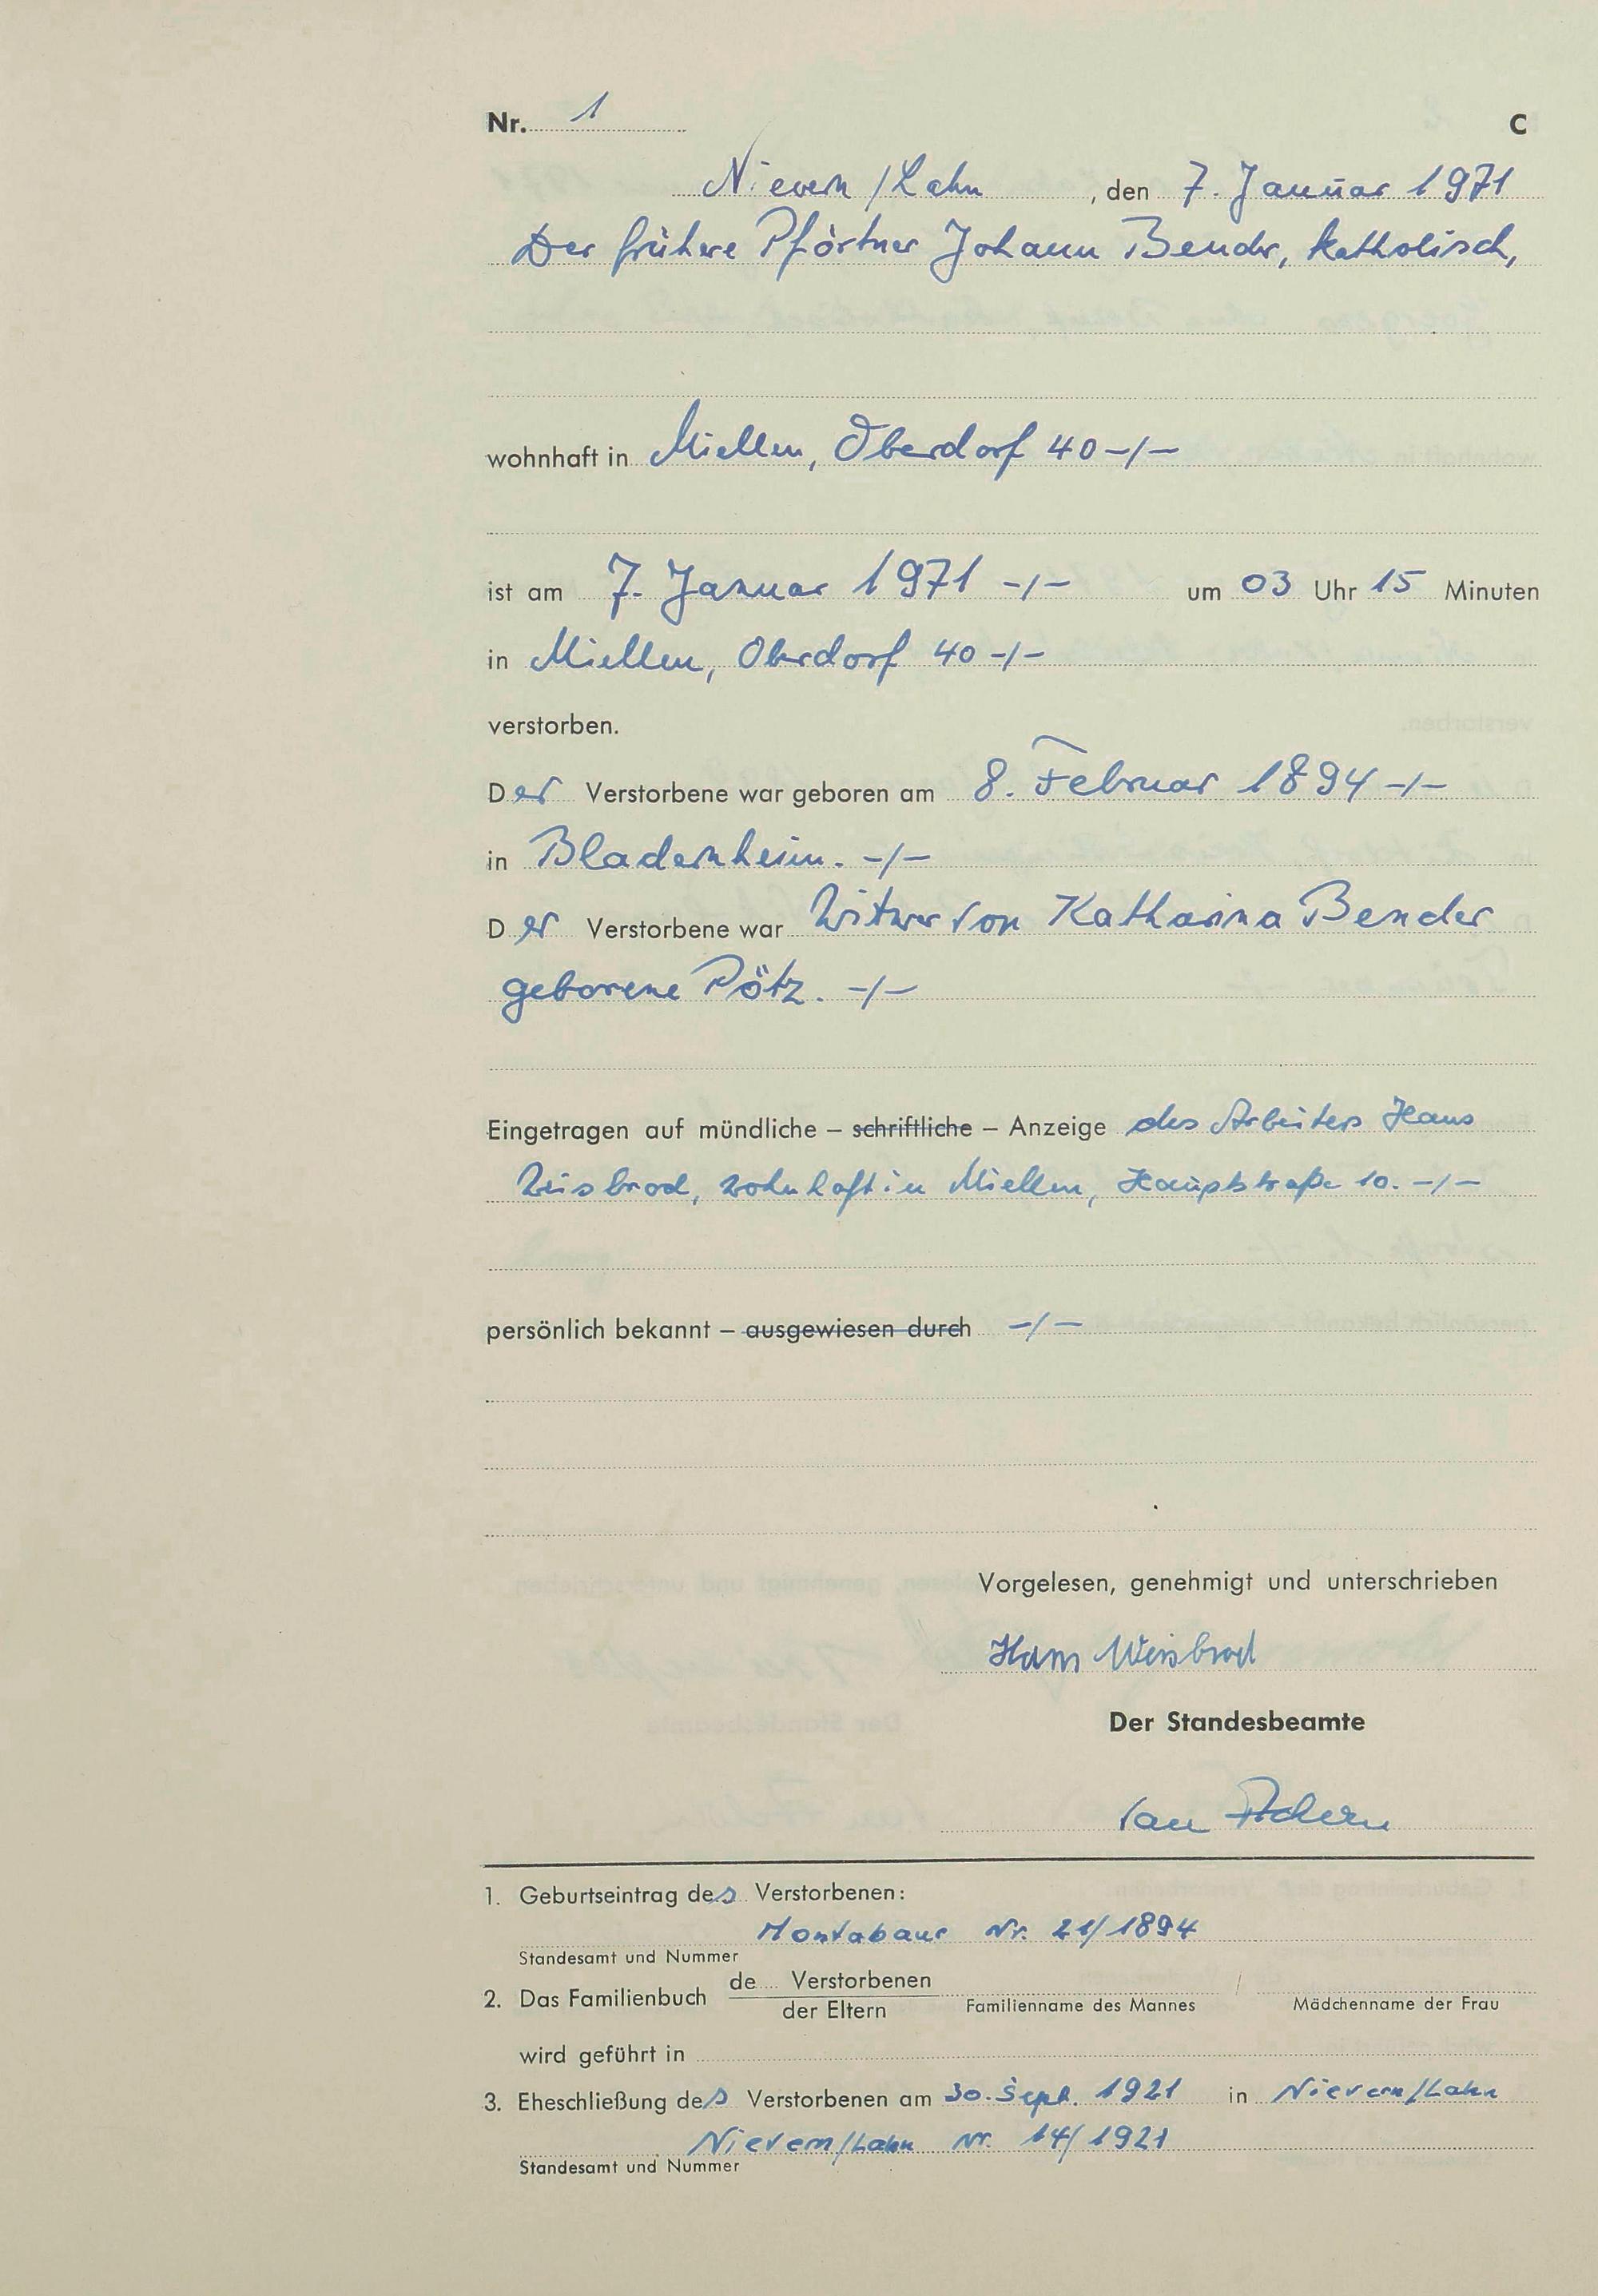 Nr. 1 C
Nievern/Lahn, den 7. Januar 1971
Der frühere Pförtner Johann Bender, katholisch,
wohnhaft in Miellen, Oberdorf 40 -/-
ist am 7. Januar 1971 -/- um 03 Uhr 15 Minuten
in Miellen, Oberdorf 40 -/-
verstorben.
Der Verstorbene war geboren am 8. Februar 1894 -/-
in Bladernheim. -/-
Der Verstorbene war Witwer von Katharina Bender
geborene Pötz. -/-
Eingetragen auf mündliche – schriftliche – Anzeige des Arbeiters Hans
Weisbrod, wohnhaft in Miellen, Hauptstraße 10. -/-
persönlich bekannt – ausgewiesen durch -/-
Vorgelesen, genehmigt und unterschrieben
Hans Weisbrod
Der Standesbeamte
1. Geburtseintrag des Verstorbenen:
Montabaur Nr. 21/1894
Standesamt und Nummer
2. Das Familienbuch de Verstorbenen / der Eltern Familienname des Mannes / Mädchenname der Frau
wird geführt in
3. Eheschließung des Verstorbenen am 30. Sept. 1921 in Nievern/Lahn
Nievern/Lahn Nr. 14/1921
Standesamt und Nummer